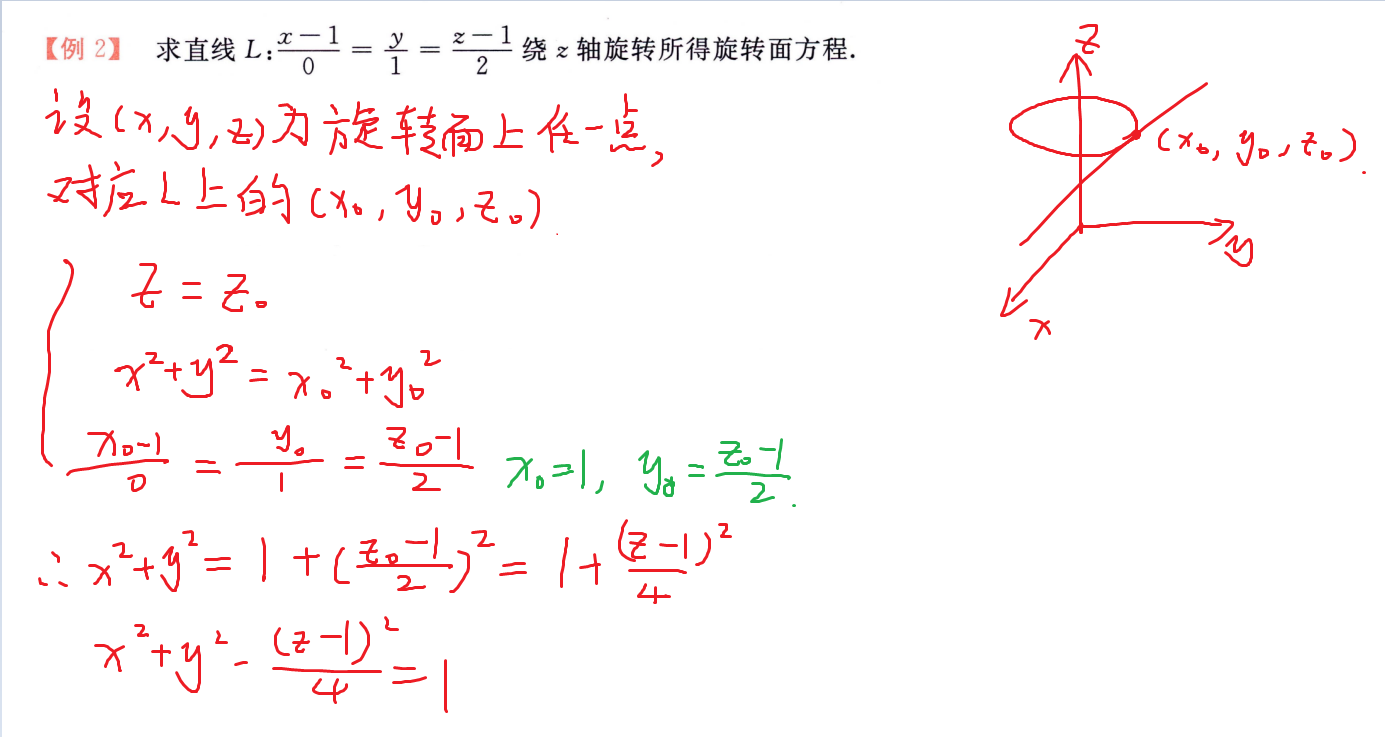 【例 2】 求直线 L: (x-1)/0 = y/1 = (z-1)/2 绕 z 轴旋转所得旋转面方程.
设(x,y,z)为旋转面上任一点,
对应L上的(x₀,y₀,z₀)
z=z₀
x²+y²=x₀²+y₀²
(x₀-1)/0 = y₀/1 = (z₀-1)/2 x₀=1, y₀=(z₀-1)/2.
∴x²+y²=1+((z₀-1)/2)²=1+(z-1)²/4
x²+y²-(z-1)²/4=1
z
(x₀,y₀,z₀).
y
x